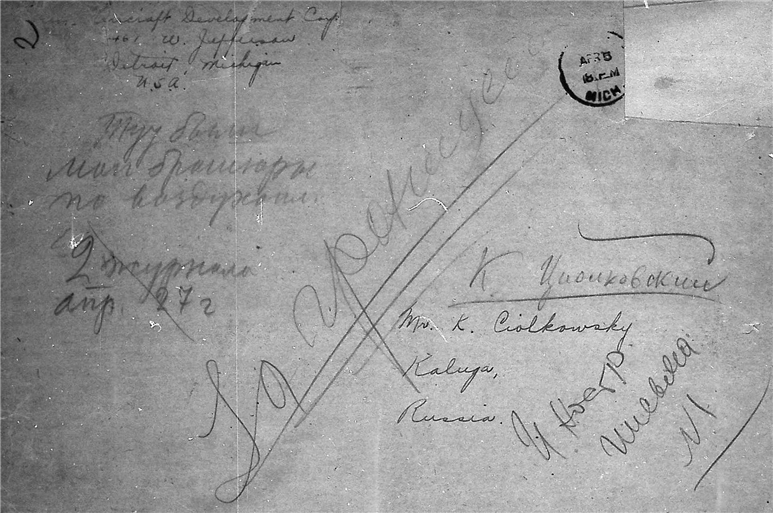 2
Aircraft Development Corp.
W. Jefferson
Detroit, Michigan
U.S.A.
APR 5
M
MICH
Тут были
мои брошюры
по воздухопл.
2 журнала
апр. 27 г
За границу
К. Циолковский
Mr. K. Ciolkowsky
Kaluga,
Russia.
Иностр.
письма
№1